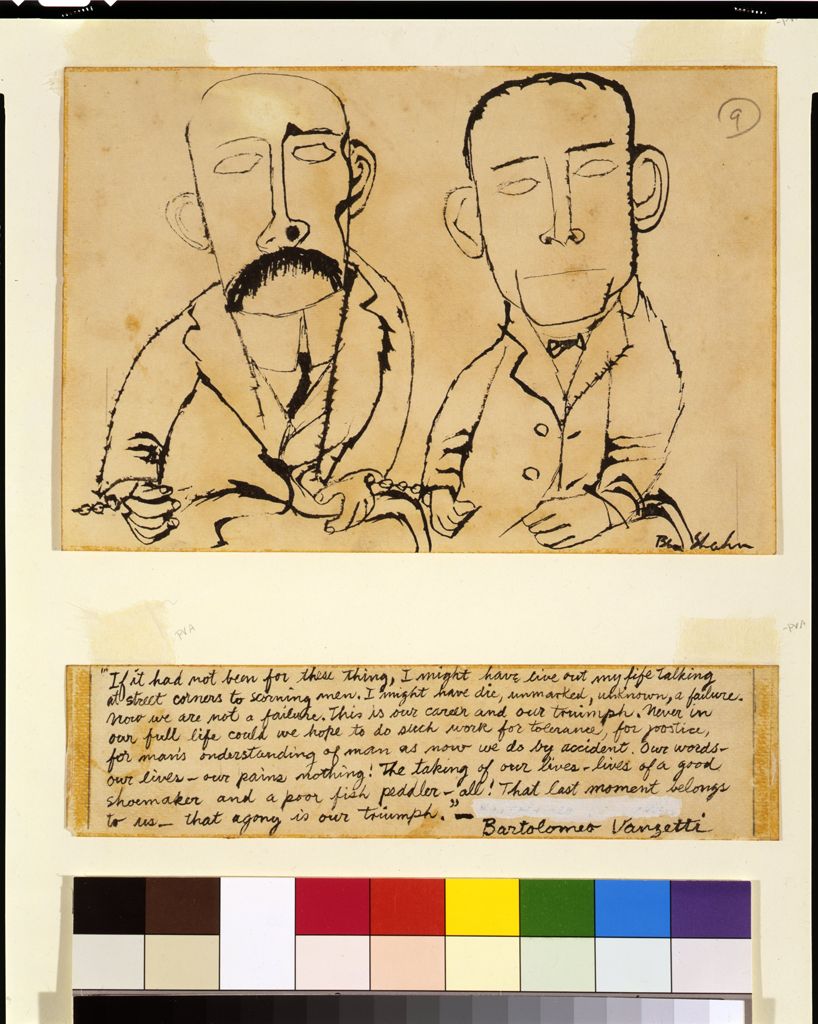 9
Ben Shahn
PVA
PVA
"If it had not been for these thing, I might have live out my fife talking
at street corners to scorning men. I might have die, unmarked, unknown, a failure.
Now we are not a failure. This is our career and our triumph. Never in
our full life could we hope to do such work for tolerance, for joostice,
for man's onderstanding of man as now we do by accident. Our words-
our lives - our pains nothing! The taking of our lives - lives of a good
shoemaker and a poor fish peddler - all! That last moment belongs
to us - that agony is our triumph." -
Bartolomeo Vanzetti